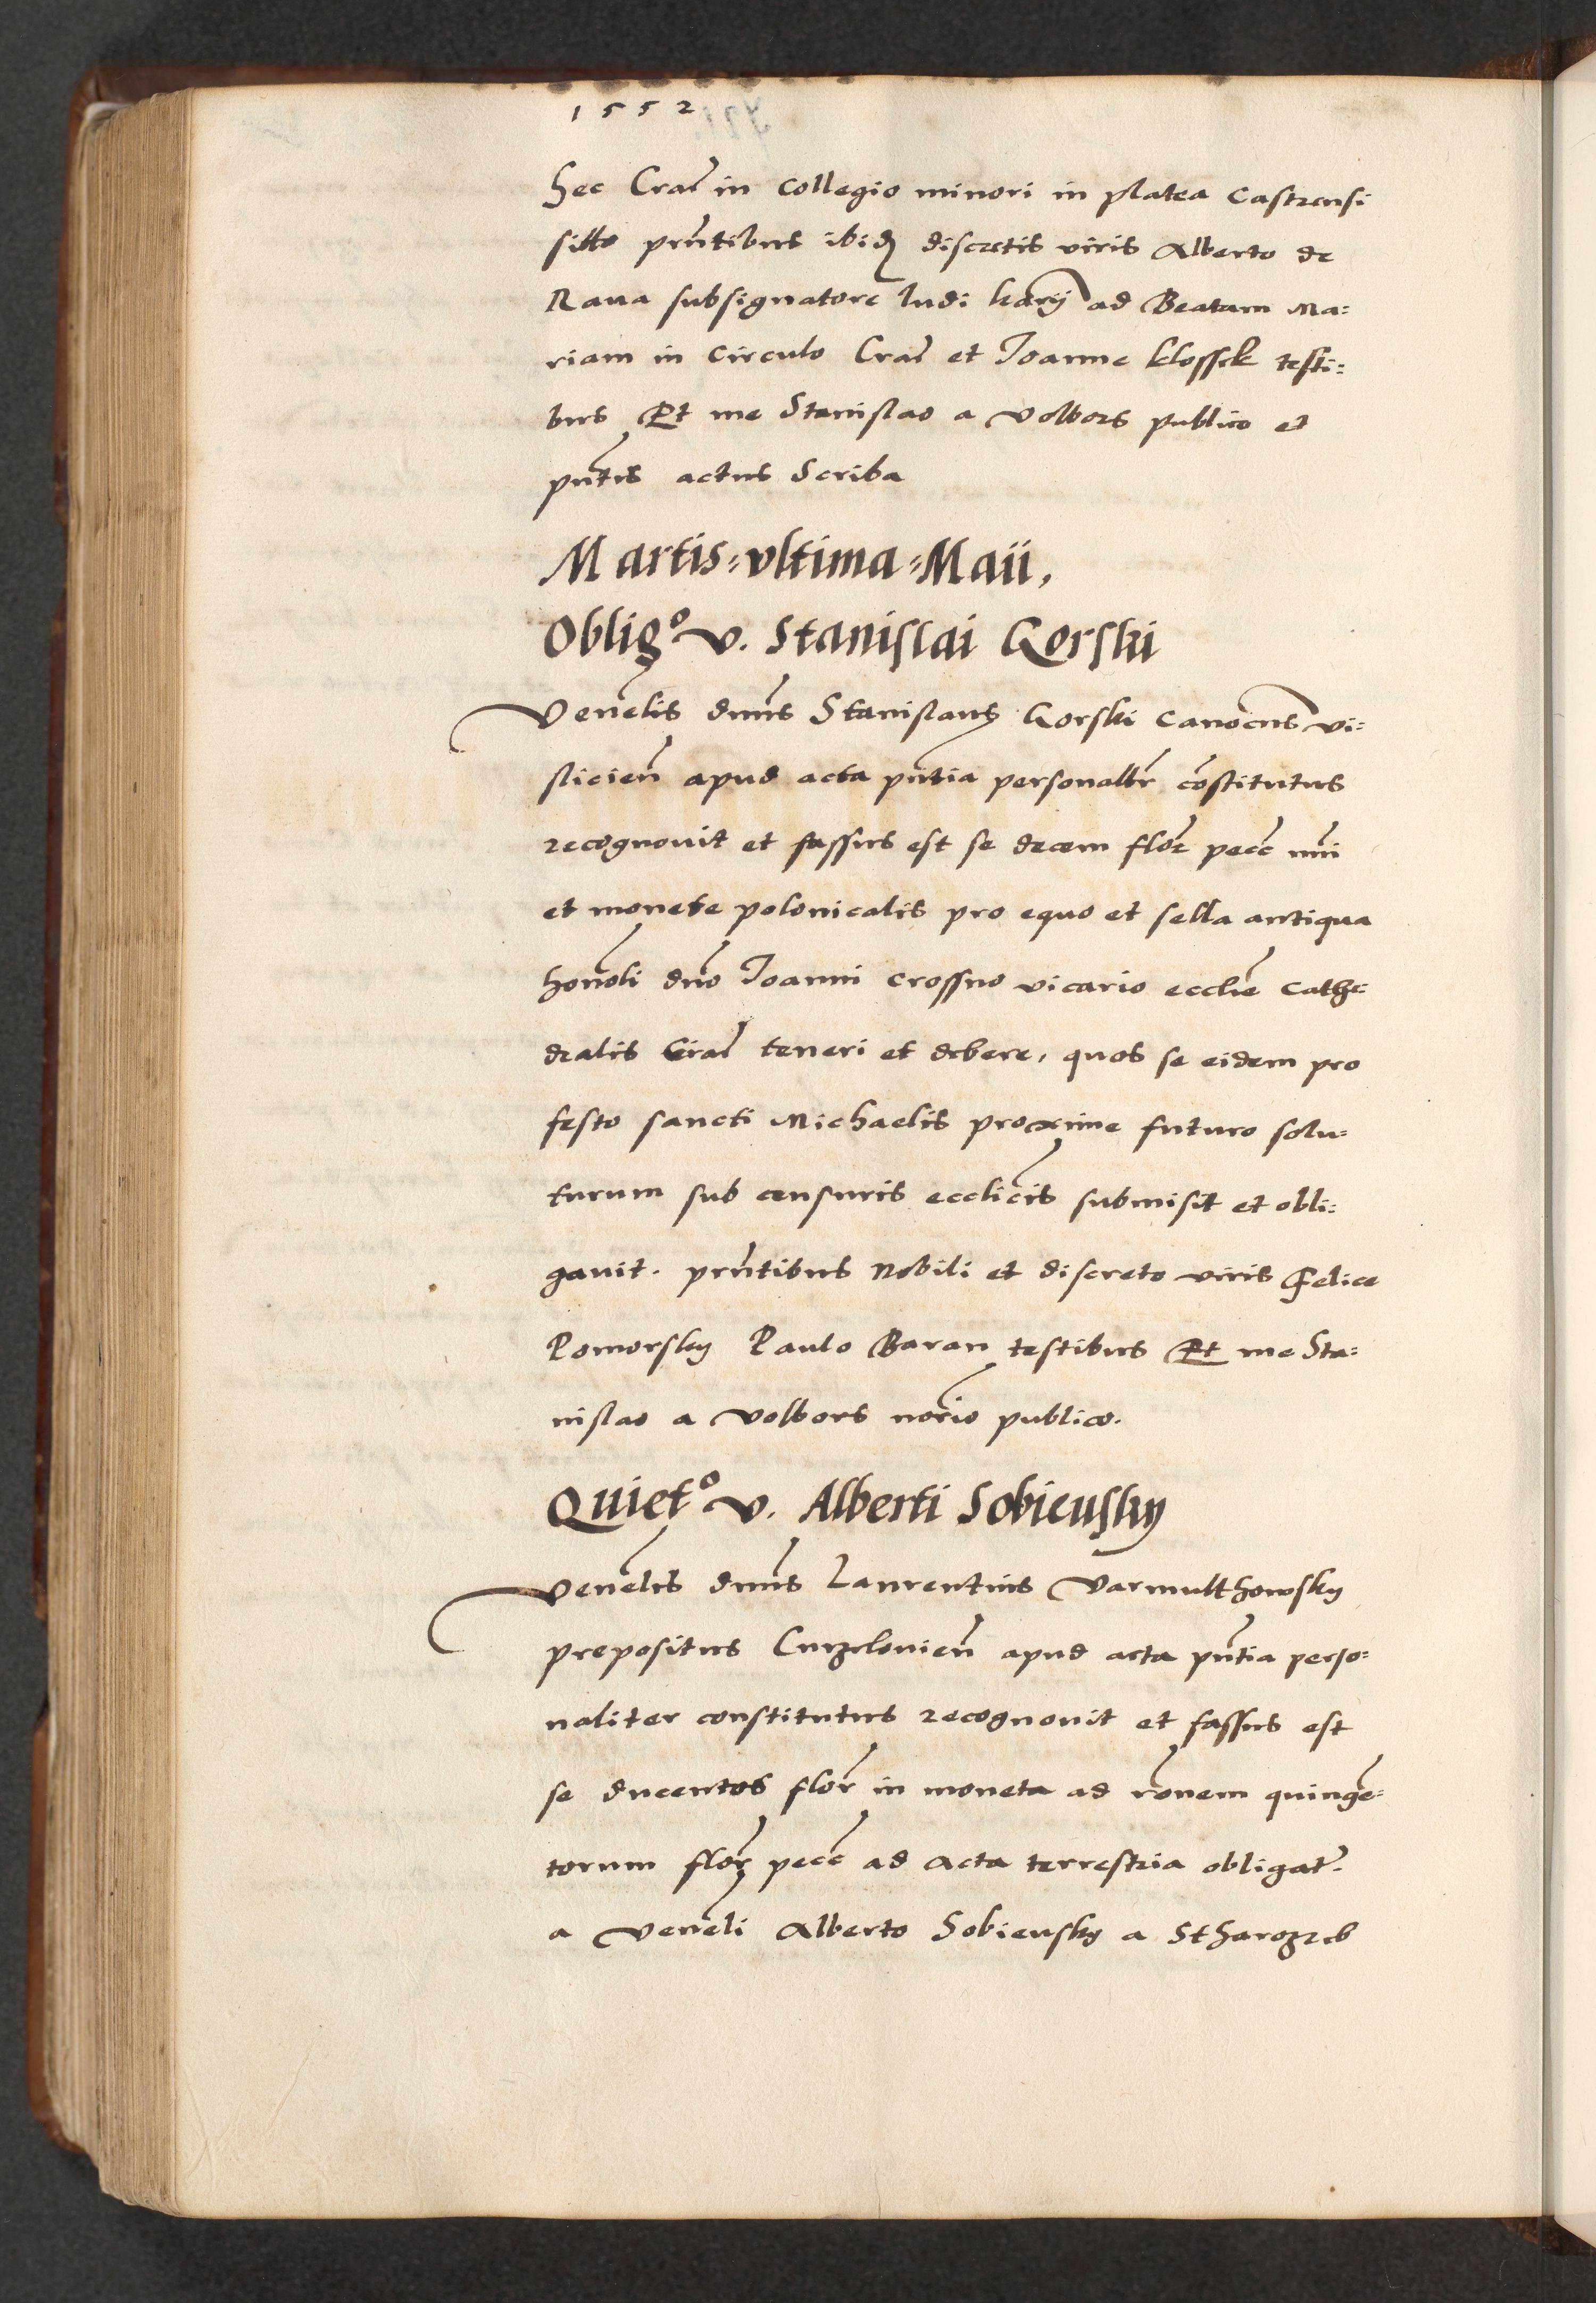 1552
hec Crac̄ in Collegio minori in platea Castrensi
sitto pr̄ntibus ibid̄ discretis viris Alberto de
Raua subsignatore ludi lr̄arij ad Beatam Ma=
riam in Circulo Crac̄ et Joanne klossek testi=
bus Et me Stanislao a volborz publico et
pn̄tis actus Scriba
Martis=vltima=Maii,
Obligᵒ v. Stanislai Gorski
Venēlis dnūs Stanislaus Gorski Canōcus vi=
slicień apud acta pn̄tia personalr̄ cōstitutus
recognouit et fassus est se decem flor̄ pecc̄ nūi
et monete polonicalis pro equo et sella antiqua
honōli dnō Joanni crossno vicario eccliē cathe
dralis Crac̄ teneri et debere, quos se eidem pro
festo sancti Michaelis proxime futuro solu=
turum sub censuris eccliċis submisit et obli=
gauit. pr̄ntibus Nobili et discreto viris Felice
Pomorsky Paulo Baran testibus Et me Sta=
nislao a volbors norīo publico.
Quietᵒ v. Alberti Sobieusky
Venēlis dnūs Laurentius Varmulthowsky
prepositus Curzelovień apud acta pn̄tia perso=
naliter constitutus recognouit et fassus est
se ducentos flor̄ in moneta ad rōnem quingē=
torum flor̄ pecc̄ ad Acta terrestria obligat̄.
a venēli Alberto Sobieusky a Stharozreb